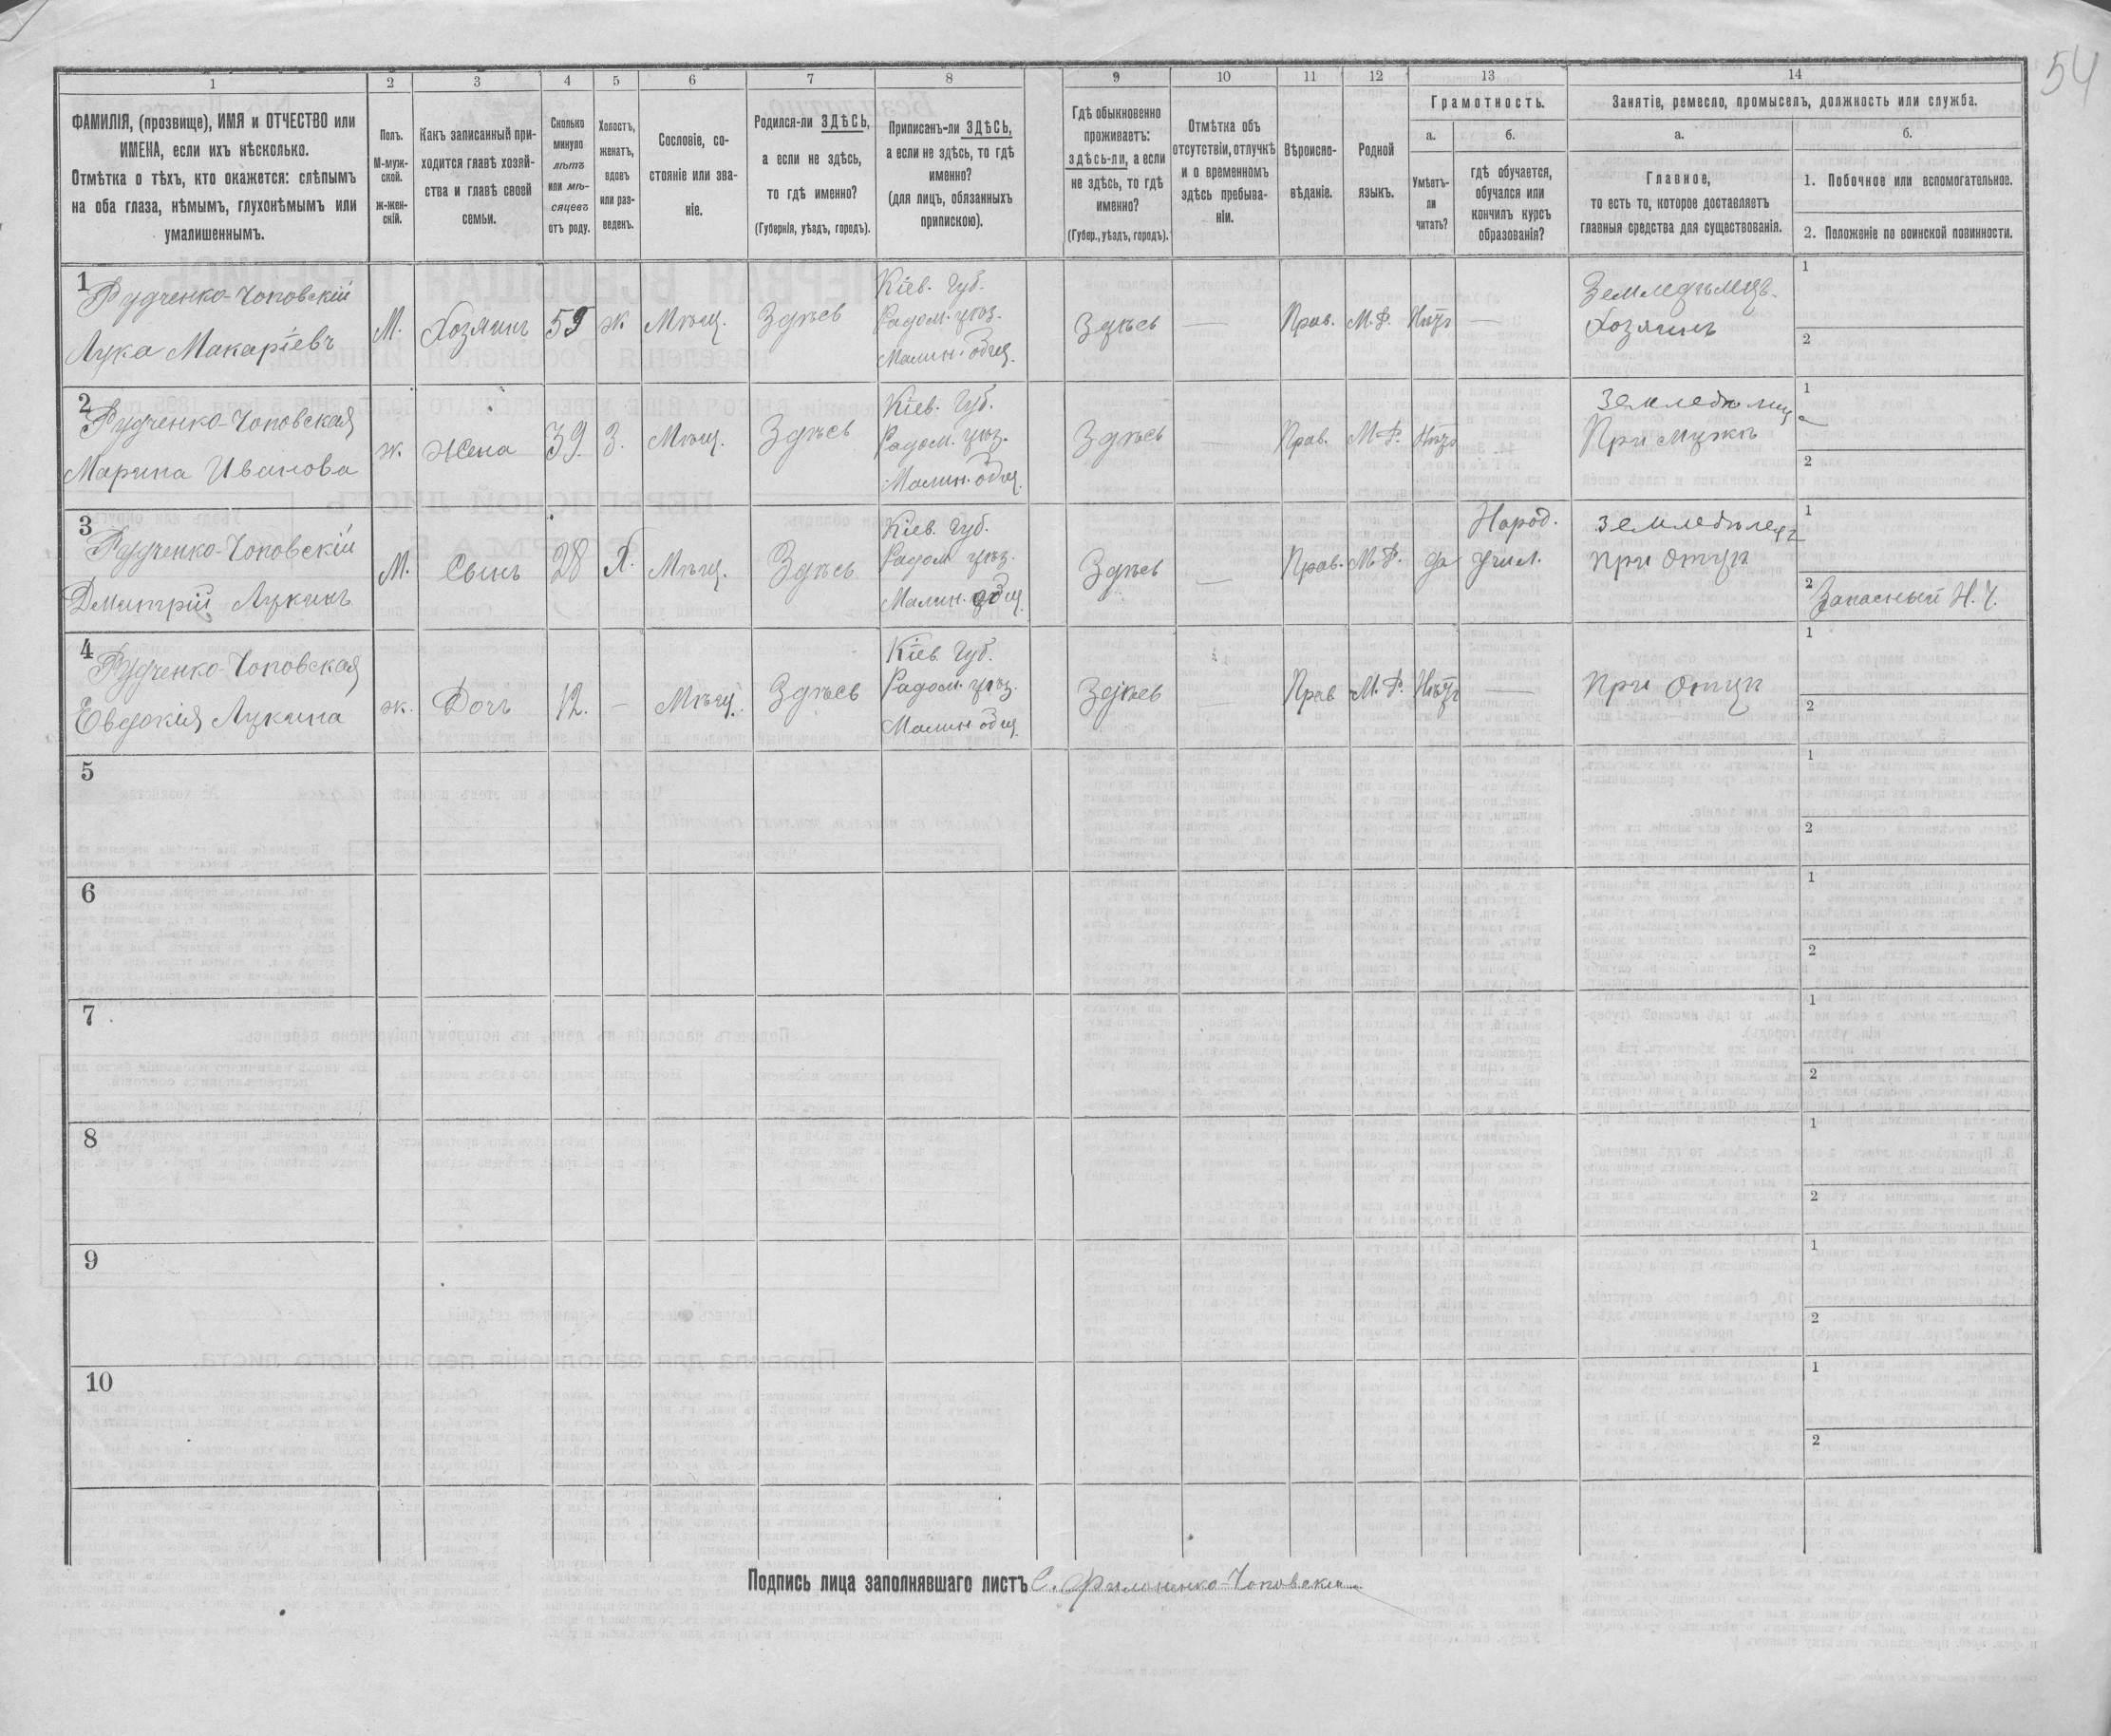 54
1
2
3
4
5
6
7
8
9
10
11
12
13
14
ФАМИЛІЯ, (прозвище), ИМЯ и ОТЧЕСТВО или
ИМЕНА, если ихъ нѣсколько.
Отмѣтка о тѣхъ, кто окажется: слѣпымъ
на оба глаза, нѣмымъ, глухонѣмымъ или
умалишеннымъ.
Полъ.
М-муж-
ской.
Ж-жен-
скій.
Какъ записанный при-
ходится главѣ хозяй-
ства и главѣ своей
семьи.
Сколько
минуло
лѣтъ
или мѣ-
сяцевъ
отъ роду.
Холостъ,
женатъ,
вдовъ
или раз-
веденъ.
Сословіе, со-
стояніе или зва-
ніе.
Родился-ли ЗДѢСЬ,
а если не здѣсь,
то гдѣ именно?
(Губернія, уѣздъ, городъ).
Приписанъ-ли ЗДѢСЬ,
а если не здѣсь, то гдѣ
именно?
(для лицъ, обязанныхъ
припискою).
Гдѣ обыкновенно
проживаетъ:
здѣсь-ли, а если
не здѣсь, то гдѣ
именно?
(Губер., уѣздъ, городъ).
Отмѣтка объ
отсутствіи, отлучкѣ
и о временномъ
здѣсь пребыва-
ніи.
Вѣроиспо-
вѣданіе.
Родной
языкъ.
Грамотность.
а.
Умѣетъ-
ли
читать?
б.
гдѣ обучается,
обучался или
кончилъ курсъ
образованія?
Занятіе, ремесло, промыселъ, должность или служба.
а.
Главное,
то есть то, которое доставляетъ
главныя средства для существованія.
б.
1. Побочное или вспомогательное.
2. Положеніе по воинской повинности.
1
Рудченко-Чоповскій
Лука Макаріевъ
М.
Хозяинъ
59
ж.
Мѣщ.
Здѣсь
Кіев. Губ.
Радом. уѣз.
Малин. общ.
Здѣсь
—
Прав.
М-Р.
Нѣтъ
—
Земледѣлецъ.
Хозяинъ
1
2
2
Рудченко-Чоповская
Марина Иванова
ж.
Жена
39.
З.
Мѣщ.
Здѣсь
Кіев. Губ.
Радом. уѣз.
Малин. общ.
Здѣсь
—
Прав.
М-Р.
Нѣтъ
Земледѣлица
При мужѣ
1
2
3
Рудченко-Чоповскій
Дмитрій Лукинъ
М.
Сынъ
28
Х.
Мѣщ.
Здѣсь
Кіев. Губ.
Радом. уѣз.
Малин. общ.
Здѣсь
—
Прав.
М-Р.
да
Народ.
Учил.
Земледѣлецъ
при отцѣ
1
2
Запасный Н. Ч.
4
Рудченко-Чоповская
Евдокія Лукина
ж.
Дочь
12.
—
Мѣщ.
Здѣсь
Кіев. Губ.
Радом. уѣз.
Малин общ.
Здѣсь
—
Прав
М.Р.
Нѣтъ
—
При Отцѣ
1
2
5
1
2
6
1
2
7
1
2
8
1
2
9
1
2
10
1
2
Подпись лица заполнявшаго листъ С. Филоненко-Чоповскій